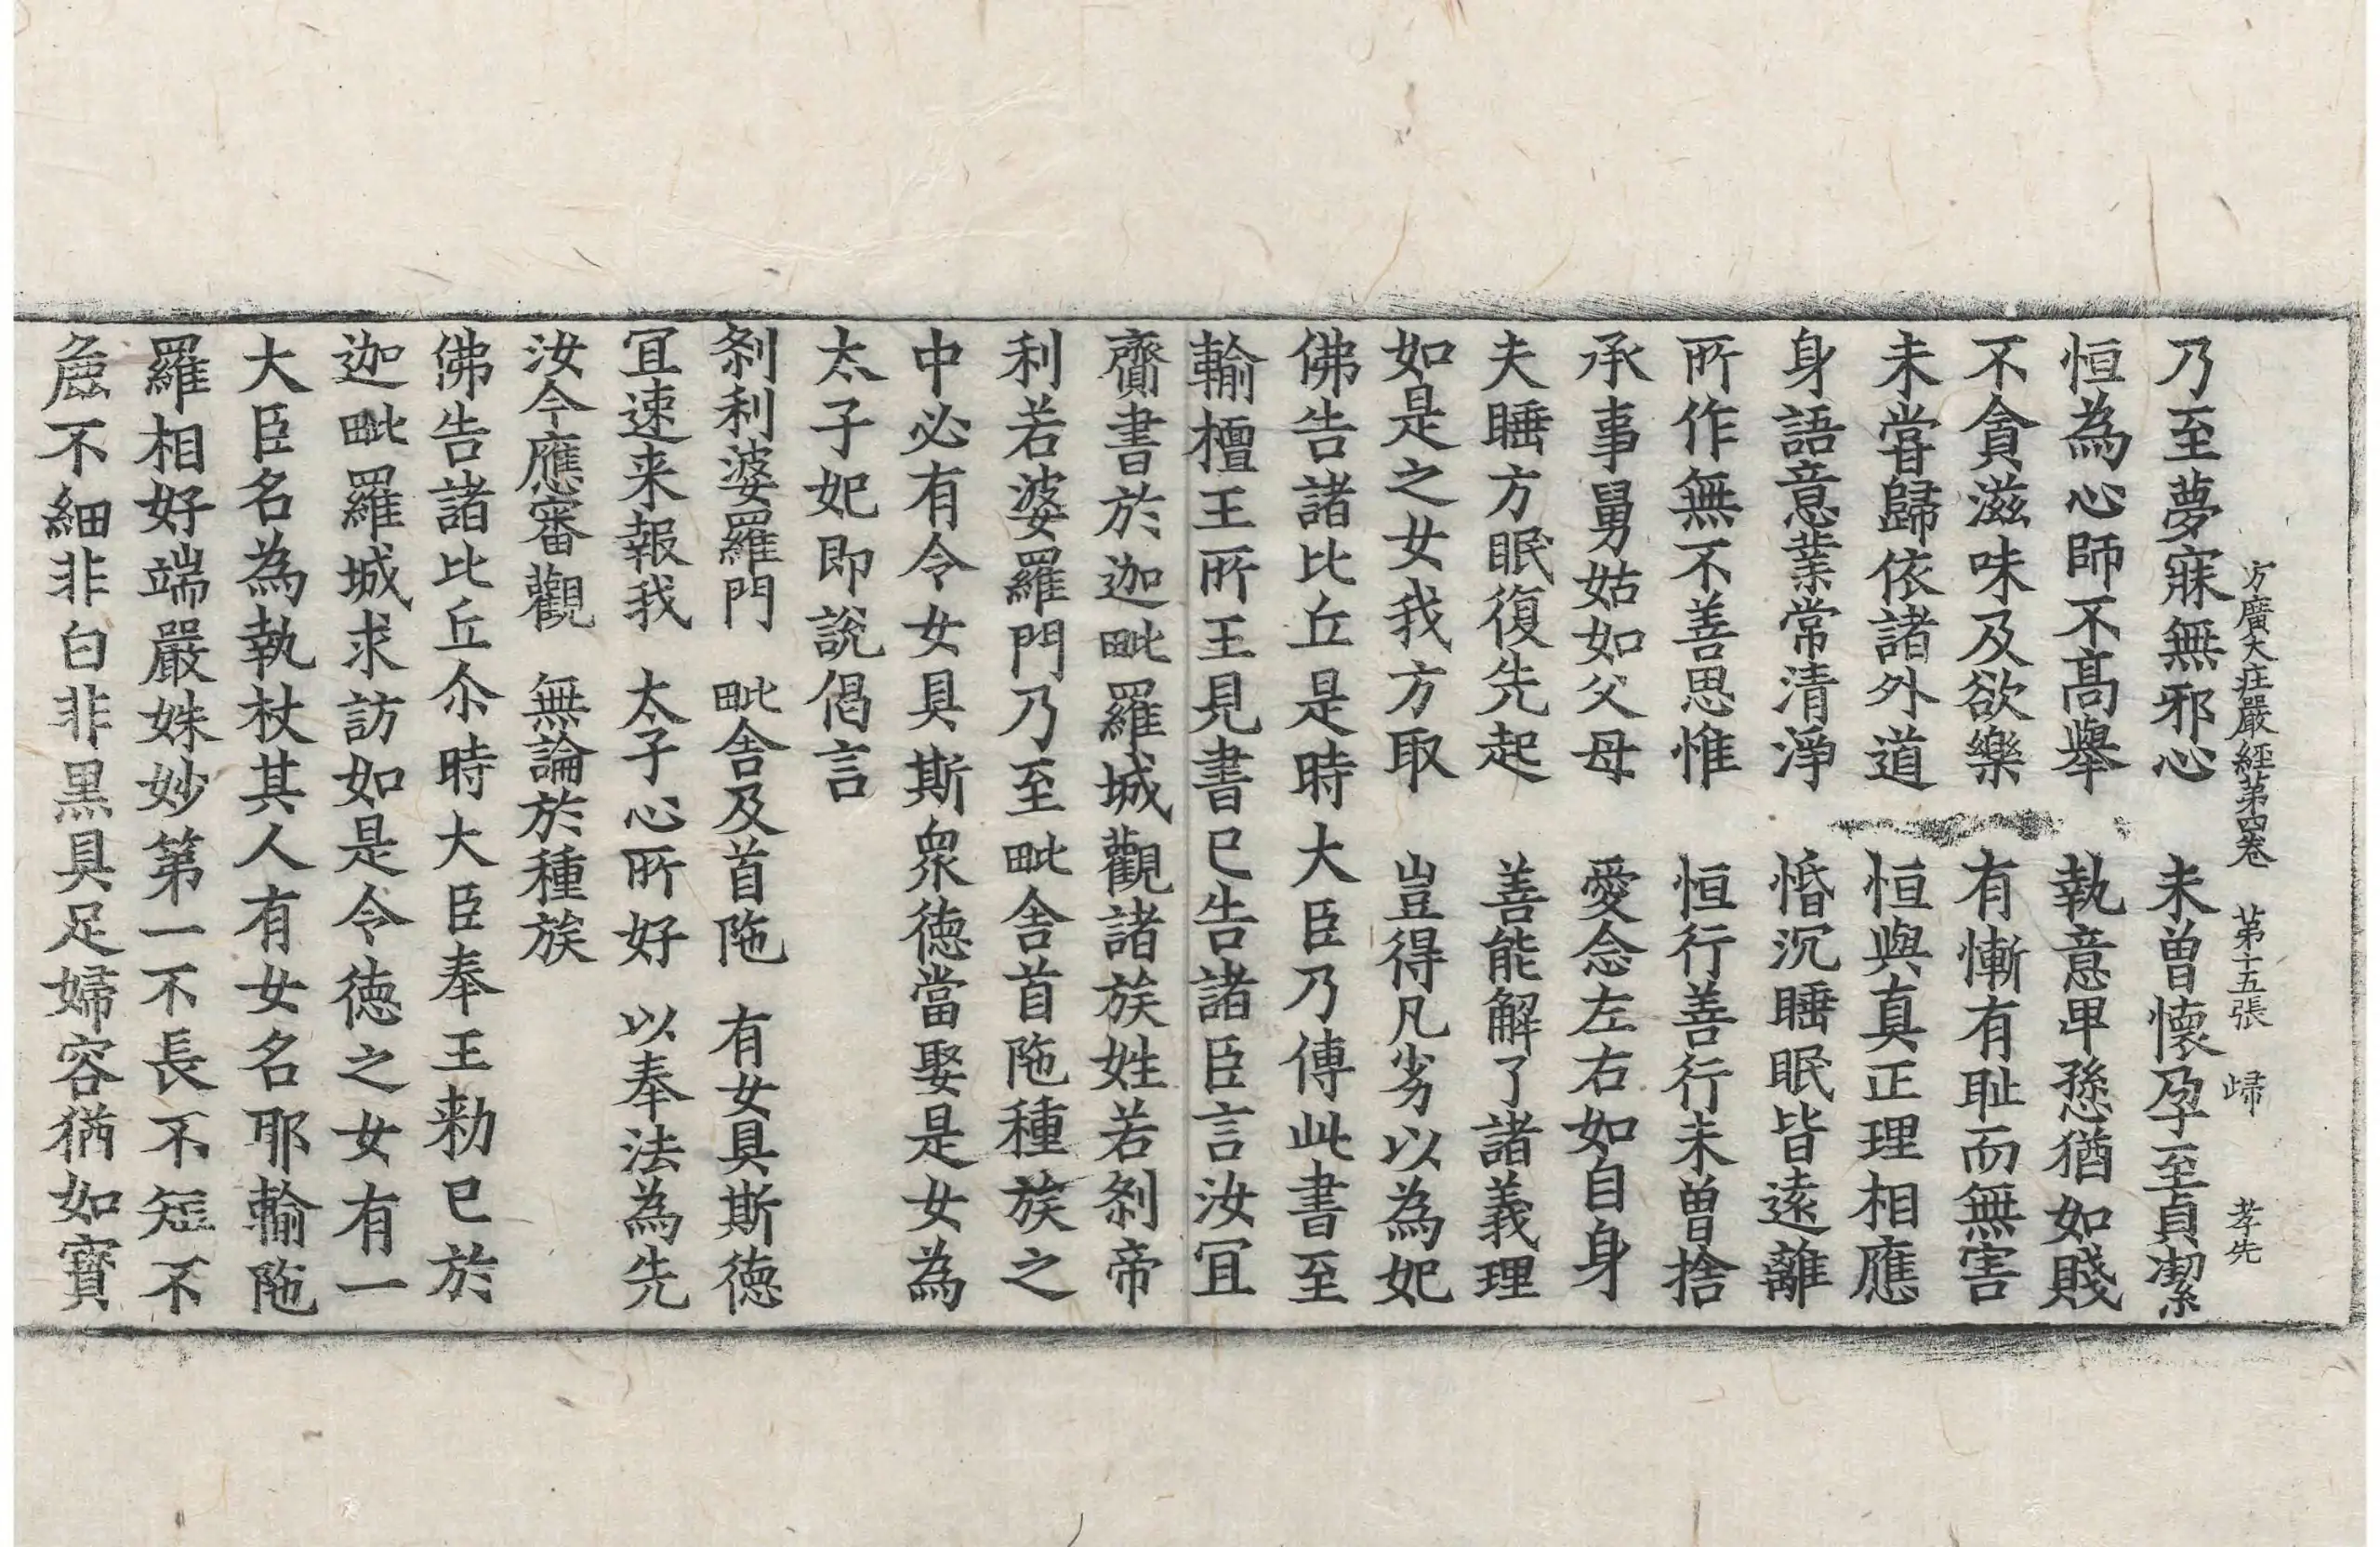 方廣大莊嚴經第四卷 第十五張 歸 孝先
乃至夢寐無邪心 未曾懷孕至貞潔
恒為心師不高舉 執意卑愻猶如賤
不貪滋味及欲樂 有慚有耻而無害
未甞歸依諸外道 恒與真正理相應
身語意業常清淨 惛沉睡眠皆遠離
所作無不善思惟 恒行善行未曾捨
承事舅姑如父母 愛念左右如自身
夫睡方眠復先起 善能解了諸義理
如是之女我方取 豈得凡劣以為妃
佛告諸比丘是時大臣乃傳此書至
輸檀王所王見書已告諸臣言汝宜
齎書於迦毗羅城觀諸族姓若剎帝
利若婆羅門乃至毗舍首陁種族之
中必有令女具斯衆德當娶是女為
太子妃即說偈言
剎利婆羅門 毗舍及首陁 有女具斯德
宜速来報我 太子心所好 以奉法為先
汝今應審觀 無論於種族
佛告諸比丘尒時大臣奉王勑已於
迦毗羅城求訪如是令德之女有一
大臣名為執杖其人有女名耶輸陁
羅相好端嚴姝妙第一不長不短不
麁不細非白非黒具足婦容猶如寳